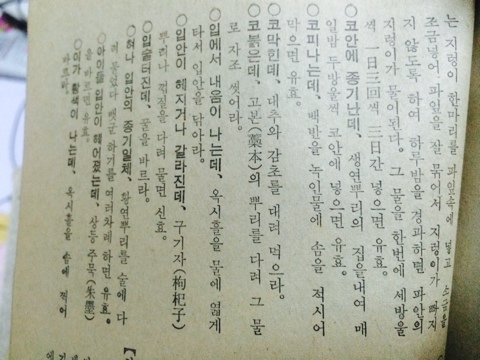 는 지렁이 한마리를 파잎속에 넣고 소금을
조금넣어 파잎을 잘 묶어서 지렁이가 빠지
지 않도록 하여 하루밤을 경과하면 파안의
지렁이가 물이된다. 그 물을 한번에 세방울
씩 一日三回씩 三日간 넣으면 유효。
○코안에 종기난데、 생연뿌리의 집을내여 매
일밤 두방울씩 코안에 넣으면 유효。
○코피나는데、 백반을 녹인물에 솜을 적시어
막으면 유효。
○코막힌데、 대추와 감초를 대려 먹으라。
○코붉는데、 고본(藁本)의 뿌리를 다려 그 물
로 자조 씻어라。
○입에서 내음이 나는데、 옥시홀을 물에 엷게
타서 입안을 닦아라。
○입안이 헤지거나 갈라진데、 구기자(枸杞子)
뿌리나 껍질을 다려 물면 신효。
○입술터진데、 꿀을 바르라。
○혀나 입안의 종기일체、 왕연뿌리를 술에 다
여러차례 하면 유효。
○아이들 입안이 헤어졌는데、 상등 주묵(朱墨)
을 바르면 유효。
○이가 황색이 나는데、 옥시홀을 솜에 적어
바르라。